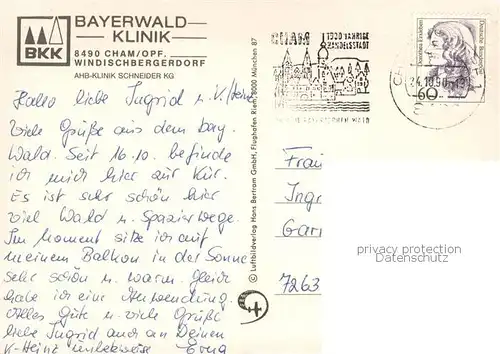 BAYERWALD-
KLINIK
BKK
8490 CHAM/OPF.
WINDISCHBERGERDORF
AHB-KLINIK SCHNEIDER KG
Hallo liebe Ingrid u. K/Heinz
Viele Grüße aus dem bay.
Wald. Seit 16.10. befinde
ich mich hier zur Kur.
Es ist sehr schön hier
viel Wald u. Spazierwege.
Im Moment sitze ich auf
meinem Balkon in der Sonne
sehr schön u. warm. Gleich
habe ich eine Anwendung.
Alles Gute u. viele Grüße
liebe Ingrid auch an Deinen
K-Heinz
© Luftbildverlag Hans Bertram GmbH, Flughafen Riem, 8000 München 87
CHAM
HANDELSSTADT
24.10.90
60
Deutsche Bundespost
Frau
Ingr
Garr
7263
privacy protection
Datenschutz